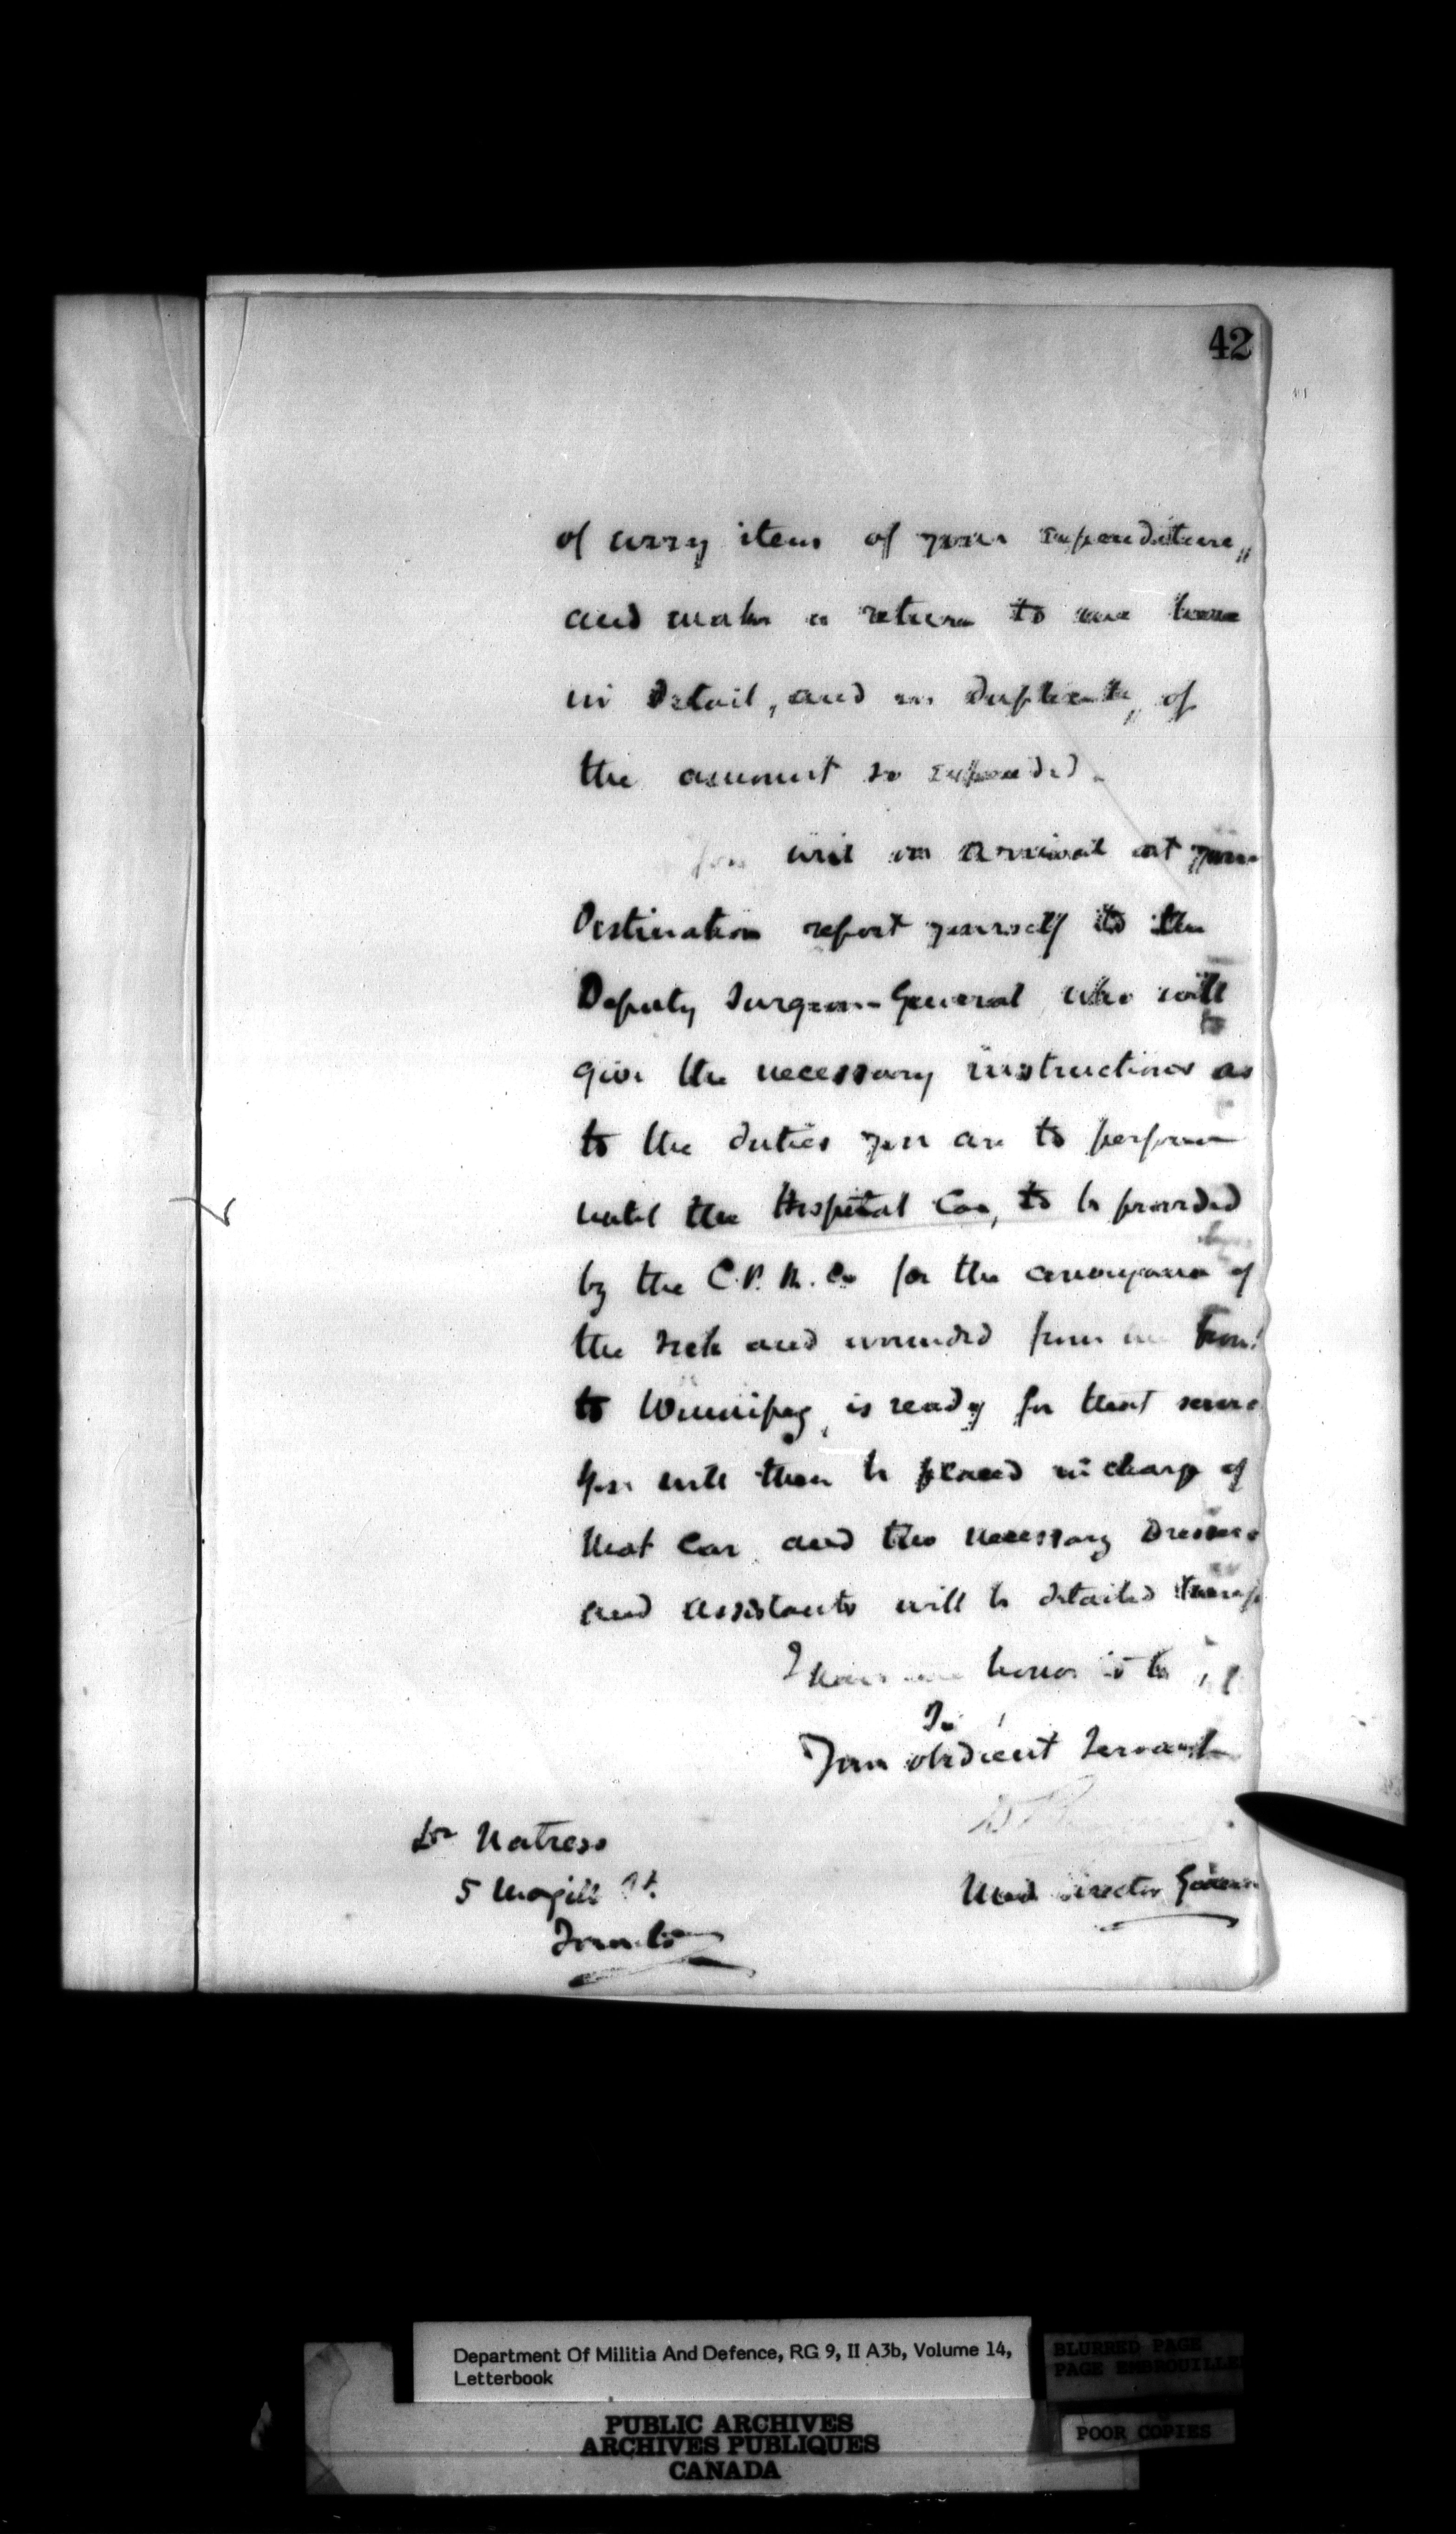 42
of every item of your expenditure,,
and make a return to me here
in detail, and in duplicate,, of
the amount so expended.
You will on arrival at your
Destination report yourself to the
Deputy Surgeon-General who will
give the necessary instructions as
to the duties you are to perform
until the Hospital Car, to be provided
by the C.P.R. Co for the conveyance of
the sick and wounded from the front
to Winnipeg, is ready for that service
You will then be placed in charge of
that Car and the necessary Dressers
and assistants will be detailed
I have the honor to be
Sir
Your obedient Servant
Dr Natress
5 Magill St.
Toronto
Med Director General
Department Of Militia And Defence, RG 9, II A3b, Volume 14,
Letterbook
BLURRED PAGE
PAGE EMBROUILLE
POOR COPIES
PUBLIC ARCHIVES
ARCHIVES PUBLIQUES
CANADA